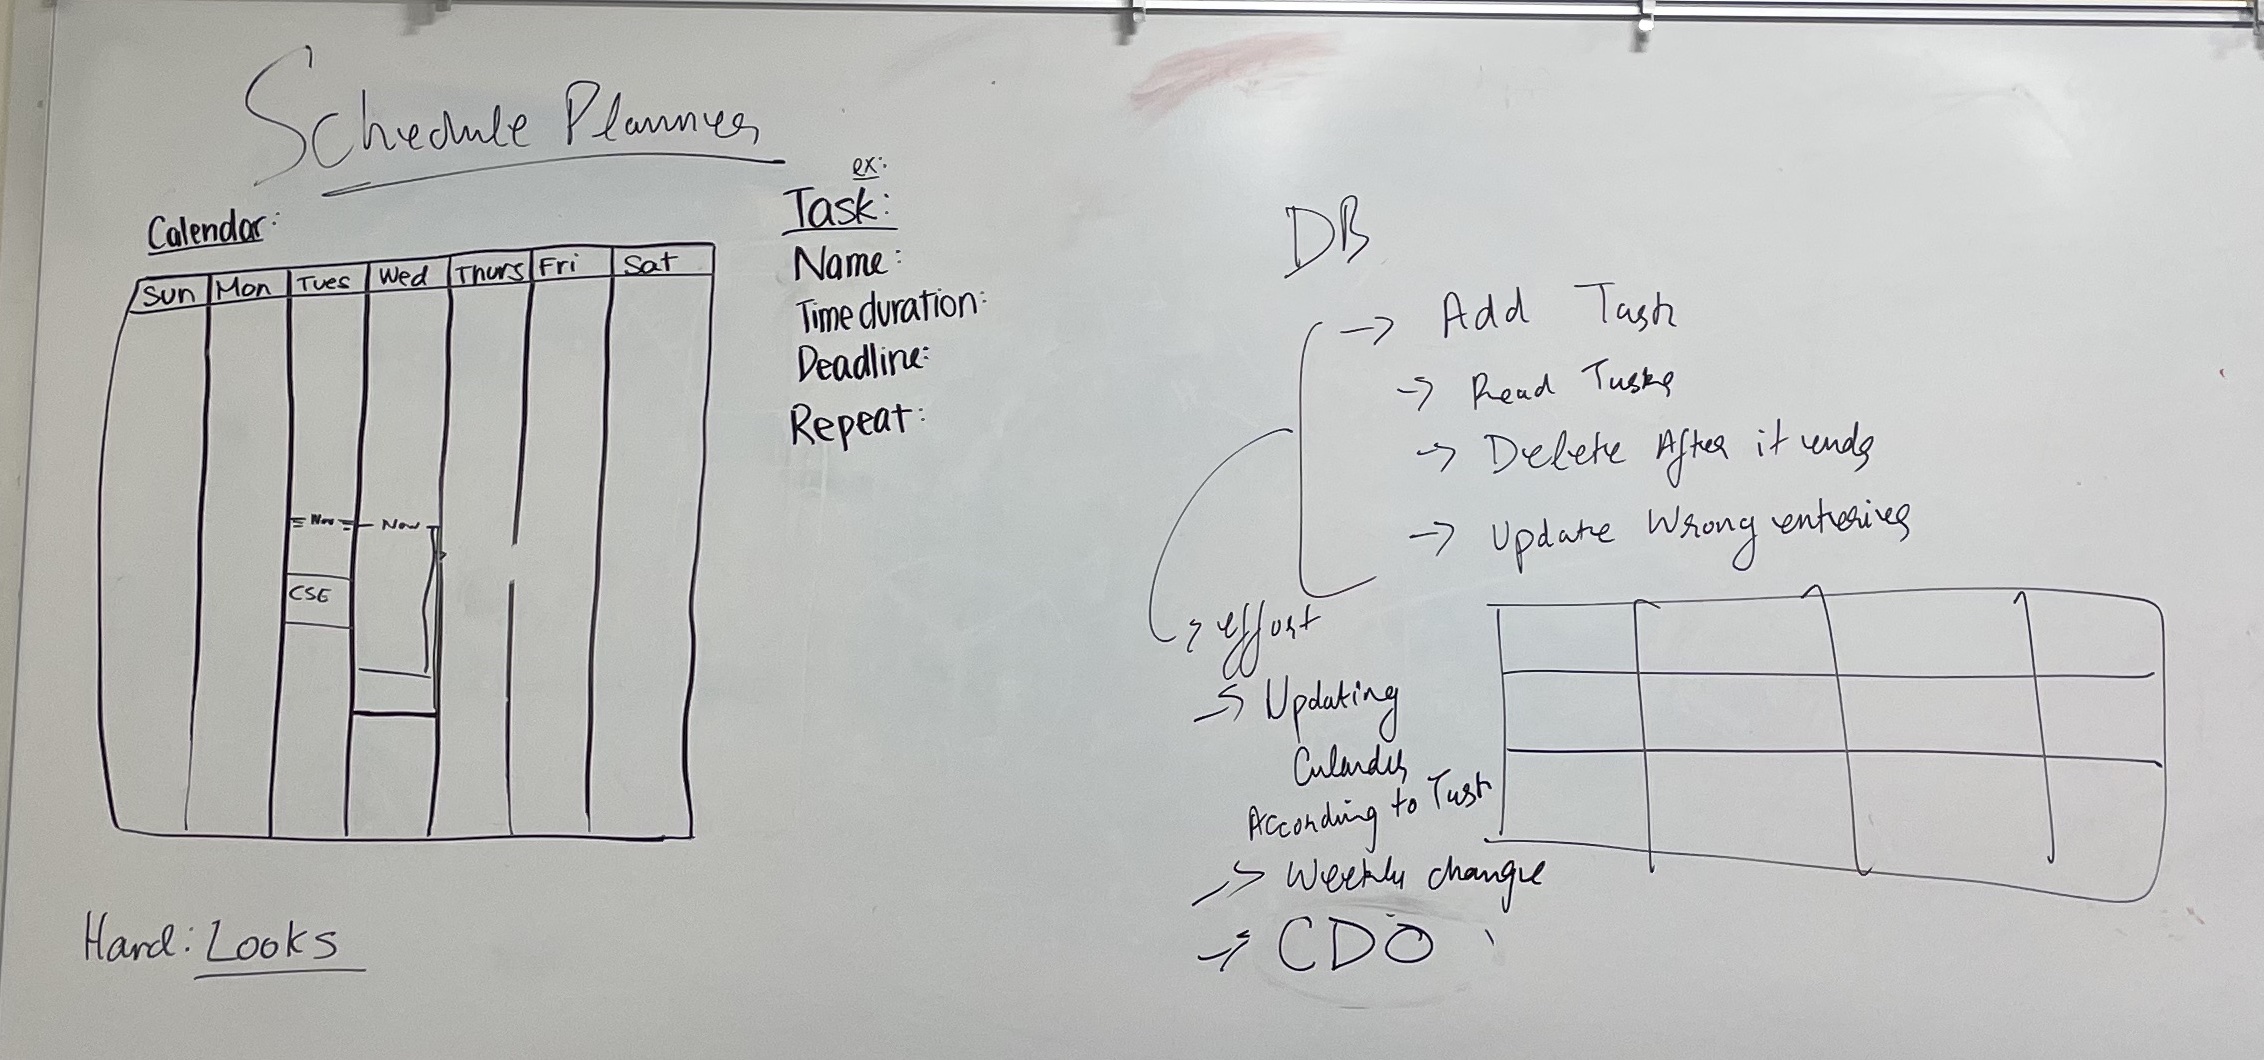 Schedule Planner
Calendar:
Sun Mon Tues Wed Thurs Fri Sat
Now Now
CSE
Hard: Looks
ex:
Task:
Name:
Time duration:
Deadline:
Repeat:
DB
→ Add Task
→ Read Tasks
→ Delete After it ends
→ Update Wrong enteries
→ effort
→ Updating
Calander
According to Task
→ Weekly change
→ CDO